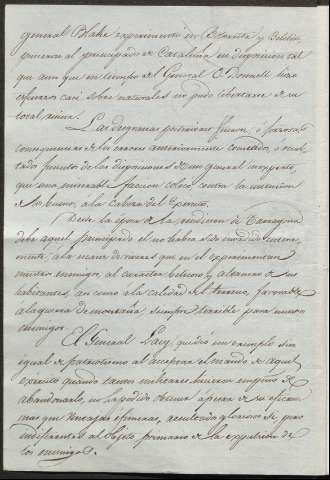 general Blake experimentó en Benavente y Belchite,
pusieron al principado de Cataluña en disposicion tal
que aun que en tiempo del General O Donnell hizo
esfuerzos casi sobre naturales no pudo libertarse de su
total ruina.
Las desgracias posteriores fueron, ó forzosas
consecuencias de los errores anteriormente cometidos, ó resul
tados funestos de las disposiciones de un general inexperto,
que una miserable faccion colocó contra la intencion
de los buenos, á la cabeza del Exercito.
Desde la época de la rendicion de Tarragona
debe aquel principado el no haber sido invadido entera-
mente, á la mania de reveses que en el experimentaron
nuestros enemigos, al caracter belicoso, y altanero de sus
habitantes, asi como á la calidad del terreno favorable
á la guerra de montaña siempre terrible para nuestros
enemigos.
El General Lacy, que dió un exemplo sin
igual de patriotismo al aceptar el mando de aquel
exército quando tantos militares hicieron empeño de
abandonarlo, no ha podido obtener apesar de sus esfuerzos
mas que ventajas efimeras, resultados gloriosos si, pero
indiferentes al objeto primario de la expulsion de
los enemigos.